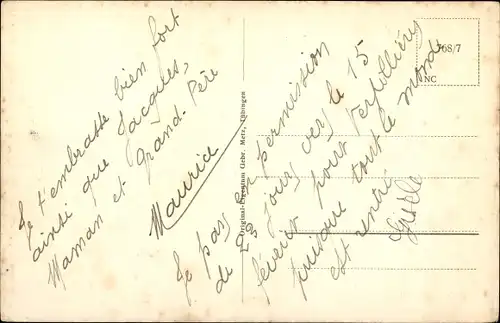 Je t'embrasse bien fort
ainsi que Jacques,
Maman et Grand-Père
Maurice
Je pars en permission
de 23 jours vers le 15
février pour Verpillières
puisque tout le monde
est rentré
Original-Eigentum Gebr. Metz, Tübingen
768/7
NC